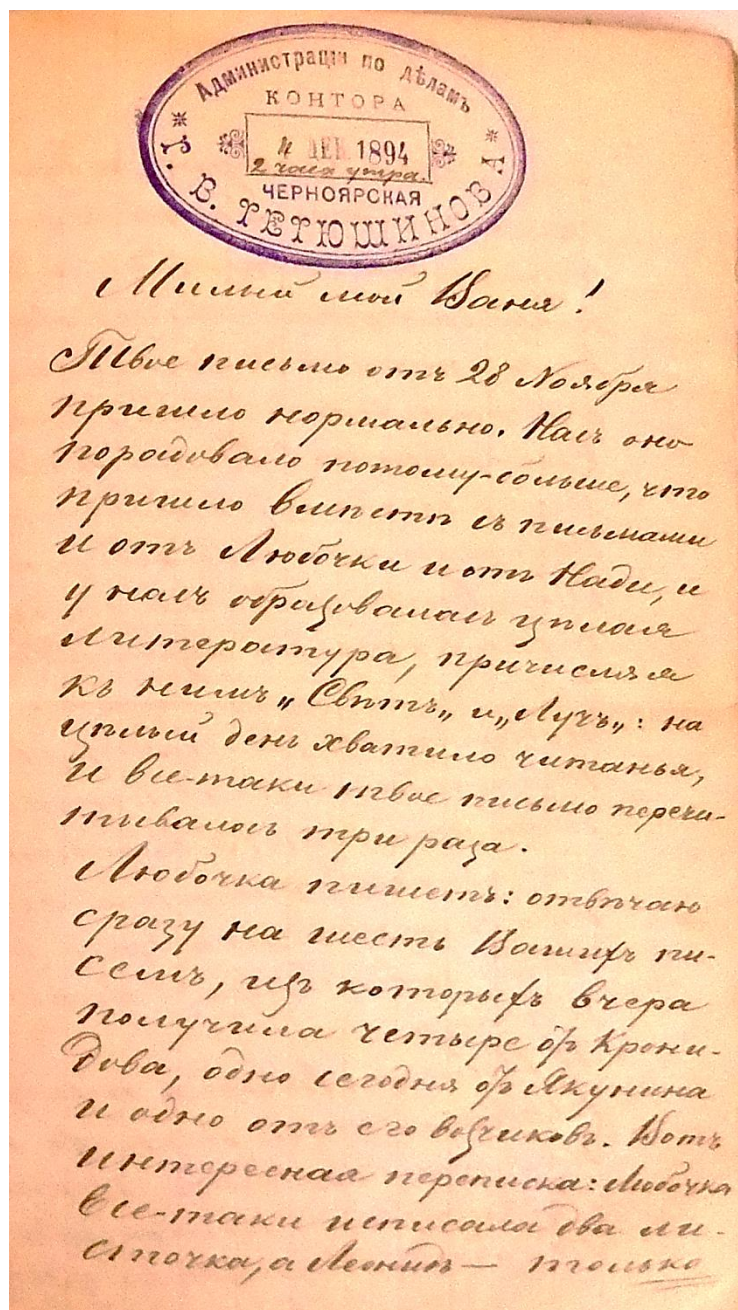 Администрацiя по дѣламъ
КОНТОРА
4 ДЕК 1894
2 часа утра.
ЧЕРНОЯРСКАЯ
В. ТЕТЮШИНОВА
Милый мой Ваня!
Твое письмо отъ 28 Ноября
пришло нормально. Насъ оно
порадовало потому-больше, что
пришло вмѣстѣ съ письмами
и отъ Любочки и отъ Нади, и
у насъ образовалась цѣлая
литература, причисляя
къ нимъ „Свѣтъ„ и „Лучъ„: на
цѣлый день хватило читанья,
и все-таки твое письмо перечи-
тывалось три раза.
Любочка пишетъ: отвѣчаю
сразу на шесть Вашихъ пи-
семъ, изъ которыхъ вчера
получила четыре Крони-
дова, одно сегодня Якунина
и одно отъ его возчиковъ. Вотъ
интересная переписка: Любочка
все-таки исписала два ли-
сточка, а Леонидъ — только